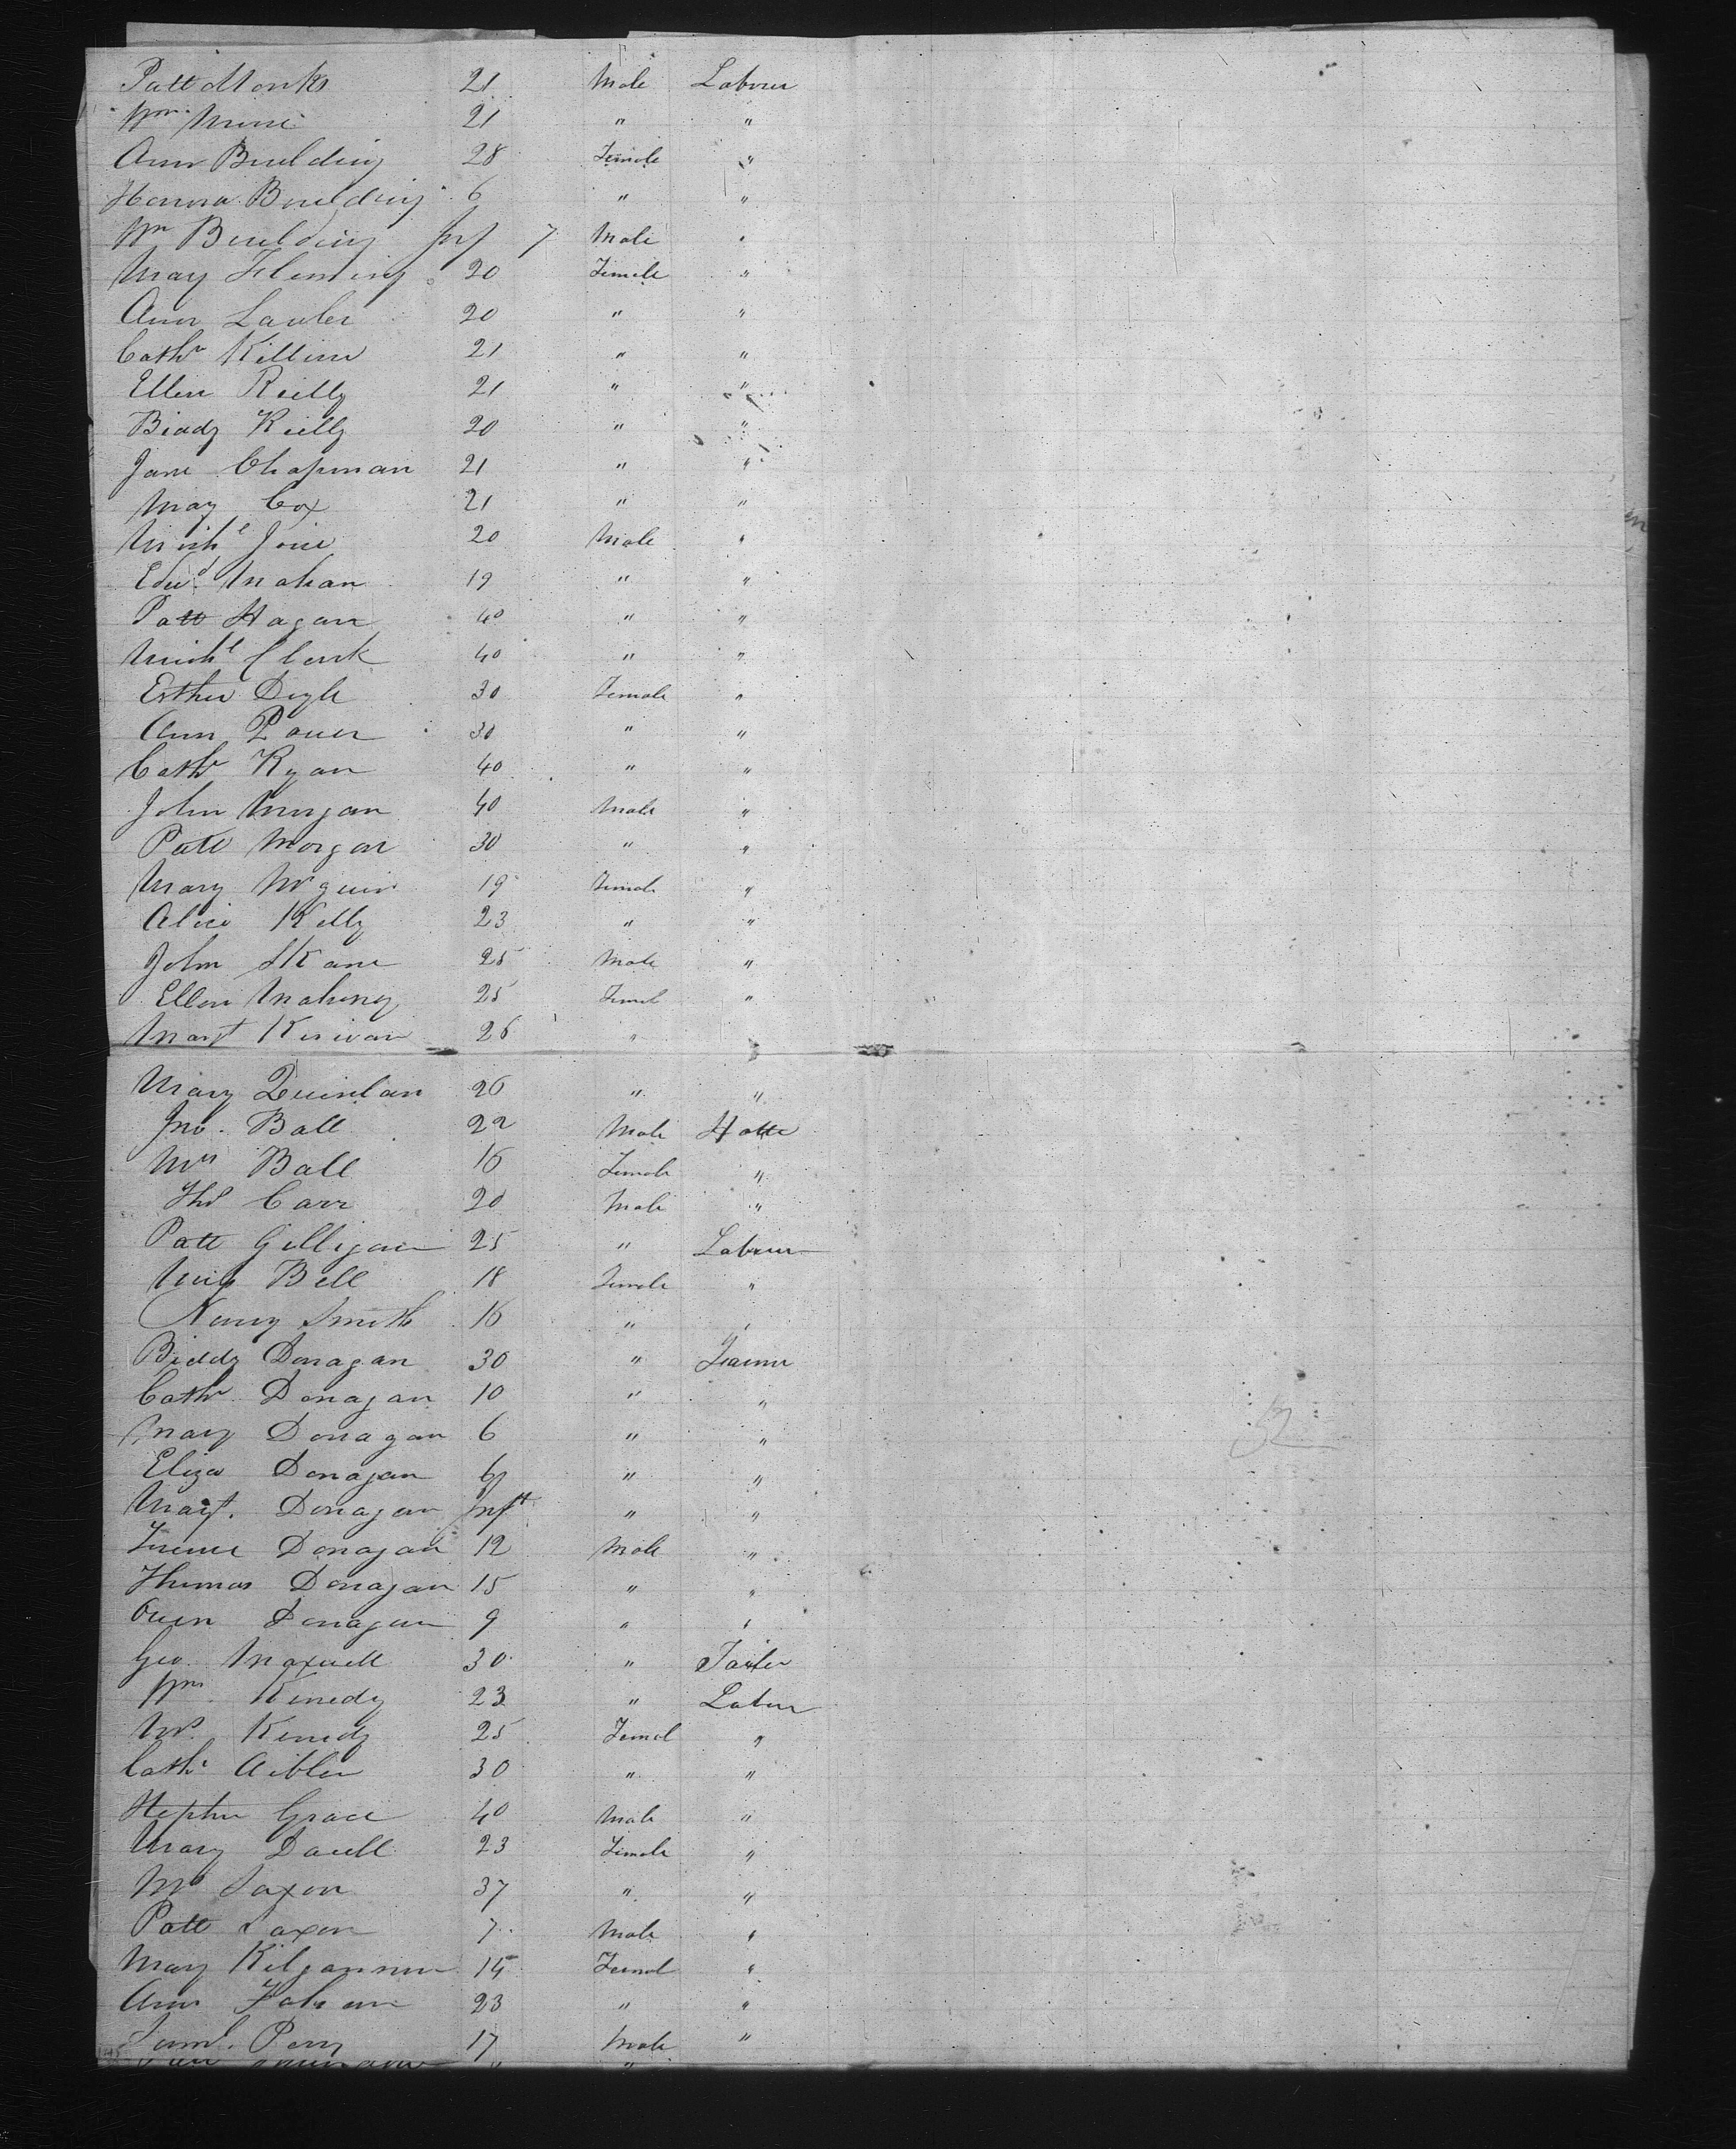 Patt Monks 21 Male Labour
Wm 21 " "
Ann Building 28 Female "
Honora Building 6 " "
Wm Building Inf 7 Male "
Mary Fleming 20 Female "
Ann Lawler 20 " "
Cathn Killin 21 " "
Ellen Reilly 21 " "
Biddy Reilly 20 " "
Jane Chapman 21 " "
May Cox 21 " "
Michl 20 Male "
Edwd Mahan 19 " "
Patt Hagan 40 " "
Michl Clark 40 " "
Esther Doyle 30 Female "
Ann Power 30 " "
Cathn Ryan 40 " "
John Morgan 40 Male "
Patt Morgan 30 " "
Mary McGuire 19 Female "
Alice Kelly 23 " "
John Kane 25 Male "
Ellen Mahony 25 Femal "
Margt Kerivan 26 "
Mary Quinlan 26 " "
Jno. Ball 22 Male Hatter
Mrs Ball 16 Female "
Thos Carr 20 Male "
Patt Gilligan 25 " Labour
Bell 18 Female "
Nancy Smith 16 " "
Biddy Donagan 30 " Farmer
Cathn Donagan 10 " "
Mary Donagan 6 " "
Eliza Donagan " "
Margt. Donagan Inft " "
Donagan 12 Male "
Thomas Donagan 15 " "
Owen Donagan 9 " "
Geo. Maxwell 30 " Tailor
Wm. Kenedy 23 " Labour
Mrs. Kenedy 25 Femal "
Cathn 30 " "
Stephen Grace 40 Male "
Mary 23 Female "
Mrs Saxon 37 " "
Patt Saxon 7 Male "
Mary Kilgannon 14 Femal "
Ann 23 " "
Saml. Perry 17 Male "